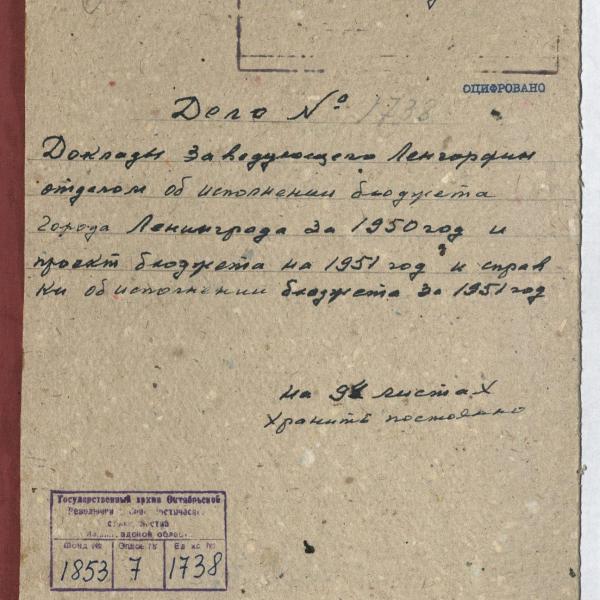 ОЦИФРОВАНО
Дело № 1738
Доклады Заведующего Ленгорфин
отделом об исполнении бюджета
города Ленинграда за 1950 год и
проект бюджета на 1951 год и справ
ки об исполнении бюджета за 1951 год
на листах
Хранить постоянно
Государственный архив Октябрьской
Революции и Социалистического
строительства
Ленинградской области
Фонд № Опись № Ед. хр. №
1853 7 1738